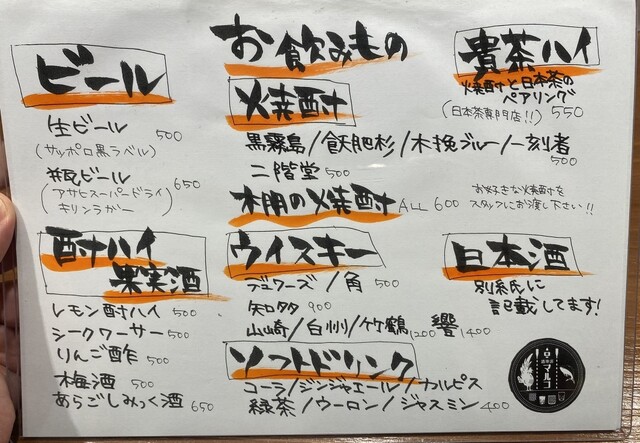 お飲みもの
ビール
生ビール 500
(サッポロ黒ラベル)
瓶ビール 650
(アサヒスーパードライ
キリンラガー)
酎ハイ
果実酒
レモン酎ハイ 500
シークワーサー 500
りんご酢 500
梅酒 500
あらごしみっく酒 650
焼酎
黒霧島/飫肥杉/木挽ブルー/一刻者 500
二階堂 500
本棚の焼酎 ALL 600
お好きな焼酎を
スタッフにお渡し下さい!!
ウイスキー
デュワーズ/角 500
知多 900
山崎/白州/竹鶴 1200 響 1400
ソフトドリンク
コーラ/ジンジャエール/カルピス
緑茶/ウーロン/ジャスミン 400
貴茶ハイ
焼酎と日本茶の
ペアリング
(日本茶専門店!!) 550
日本酒
別紙に
記載してます!